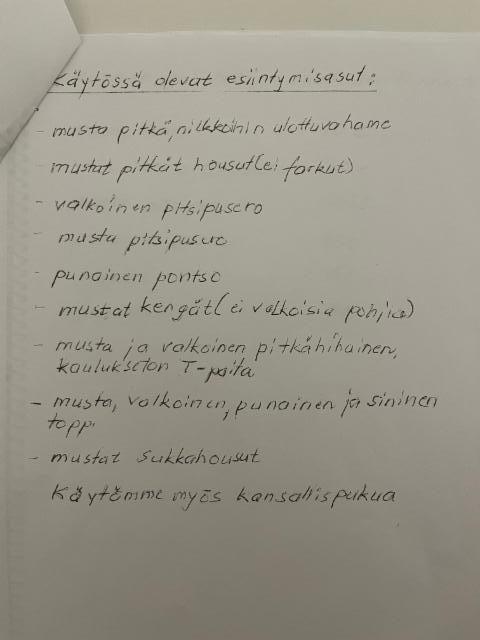 Käytössä olevat esiintymisasut:
- musta pitkä, nilkkoihin ulottuva hame
- mustat pitkät housut (ei farkut)
- valkoinen pitsipusero
- musta pitsipusero
- punainen pontso
- mustat kengät (ei valkoisia pohjia)
- musta ja valkoinen pitkähihainen,
kaulukseton T-paita
- musta, valkoinen, punainen ja sininen
toppi
- mustat sukkahousut
Käytämme myös kansallispukua